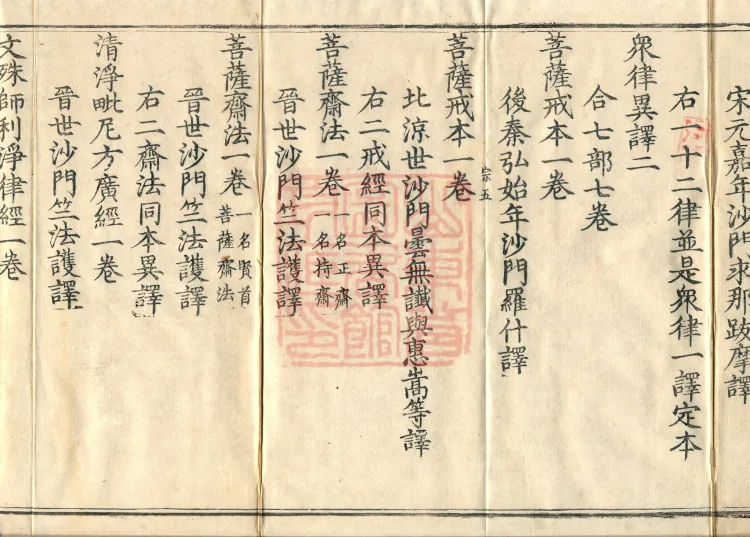 宋元嘉年沙門求那跋摩譯
右一十二律並是衆律一譯定本
衆律異譯二
合七部七卷
菩薩戒本一卷
後秦弘始年沙門羅什譯
宗五
菩薩戒本一卷
北涼世沙門曇無讖與惠嵩等譯
右二戒經同本異譯
菩薩齋法一卷 一名正齋 一名持齋
晉世沙門竺法護譯
菩薩齋法一卷 一名賢首菩薩齋法
晉世沙門竺法護譯
右二齋法同本異譯
清淨毗尼方廣經一卷
晉世沙門竺法護譯
文殊師利淨律經一卷